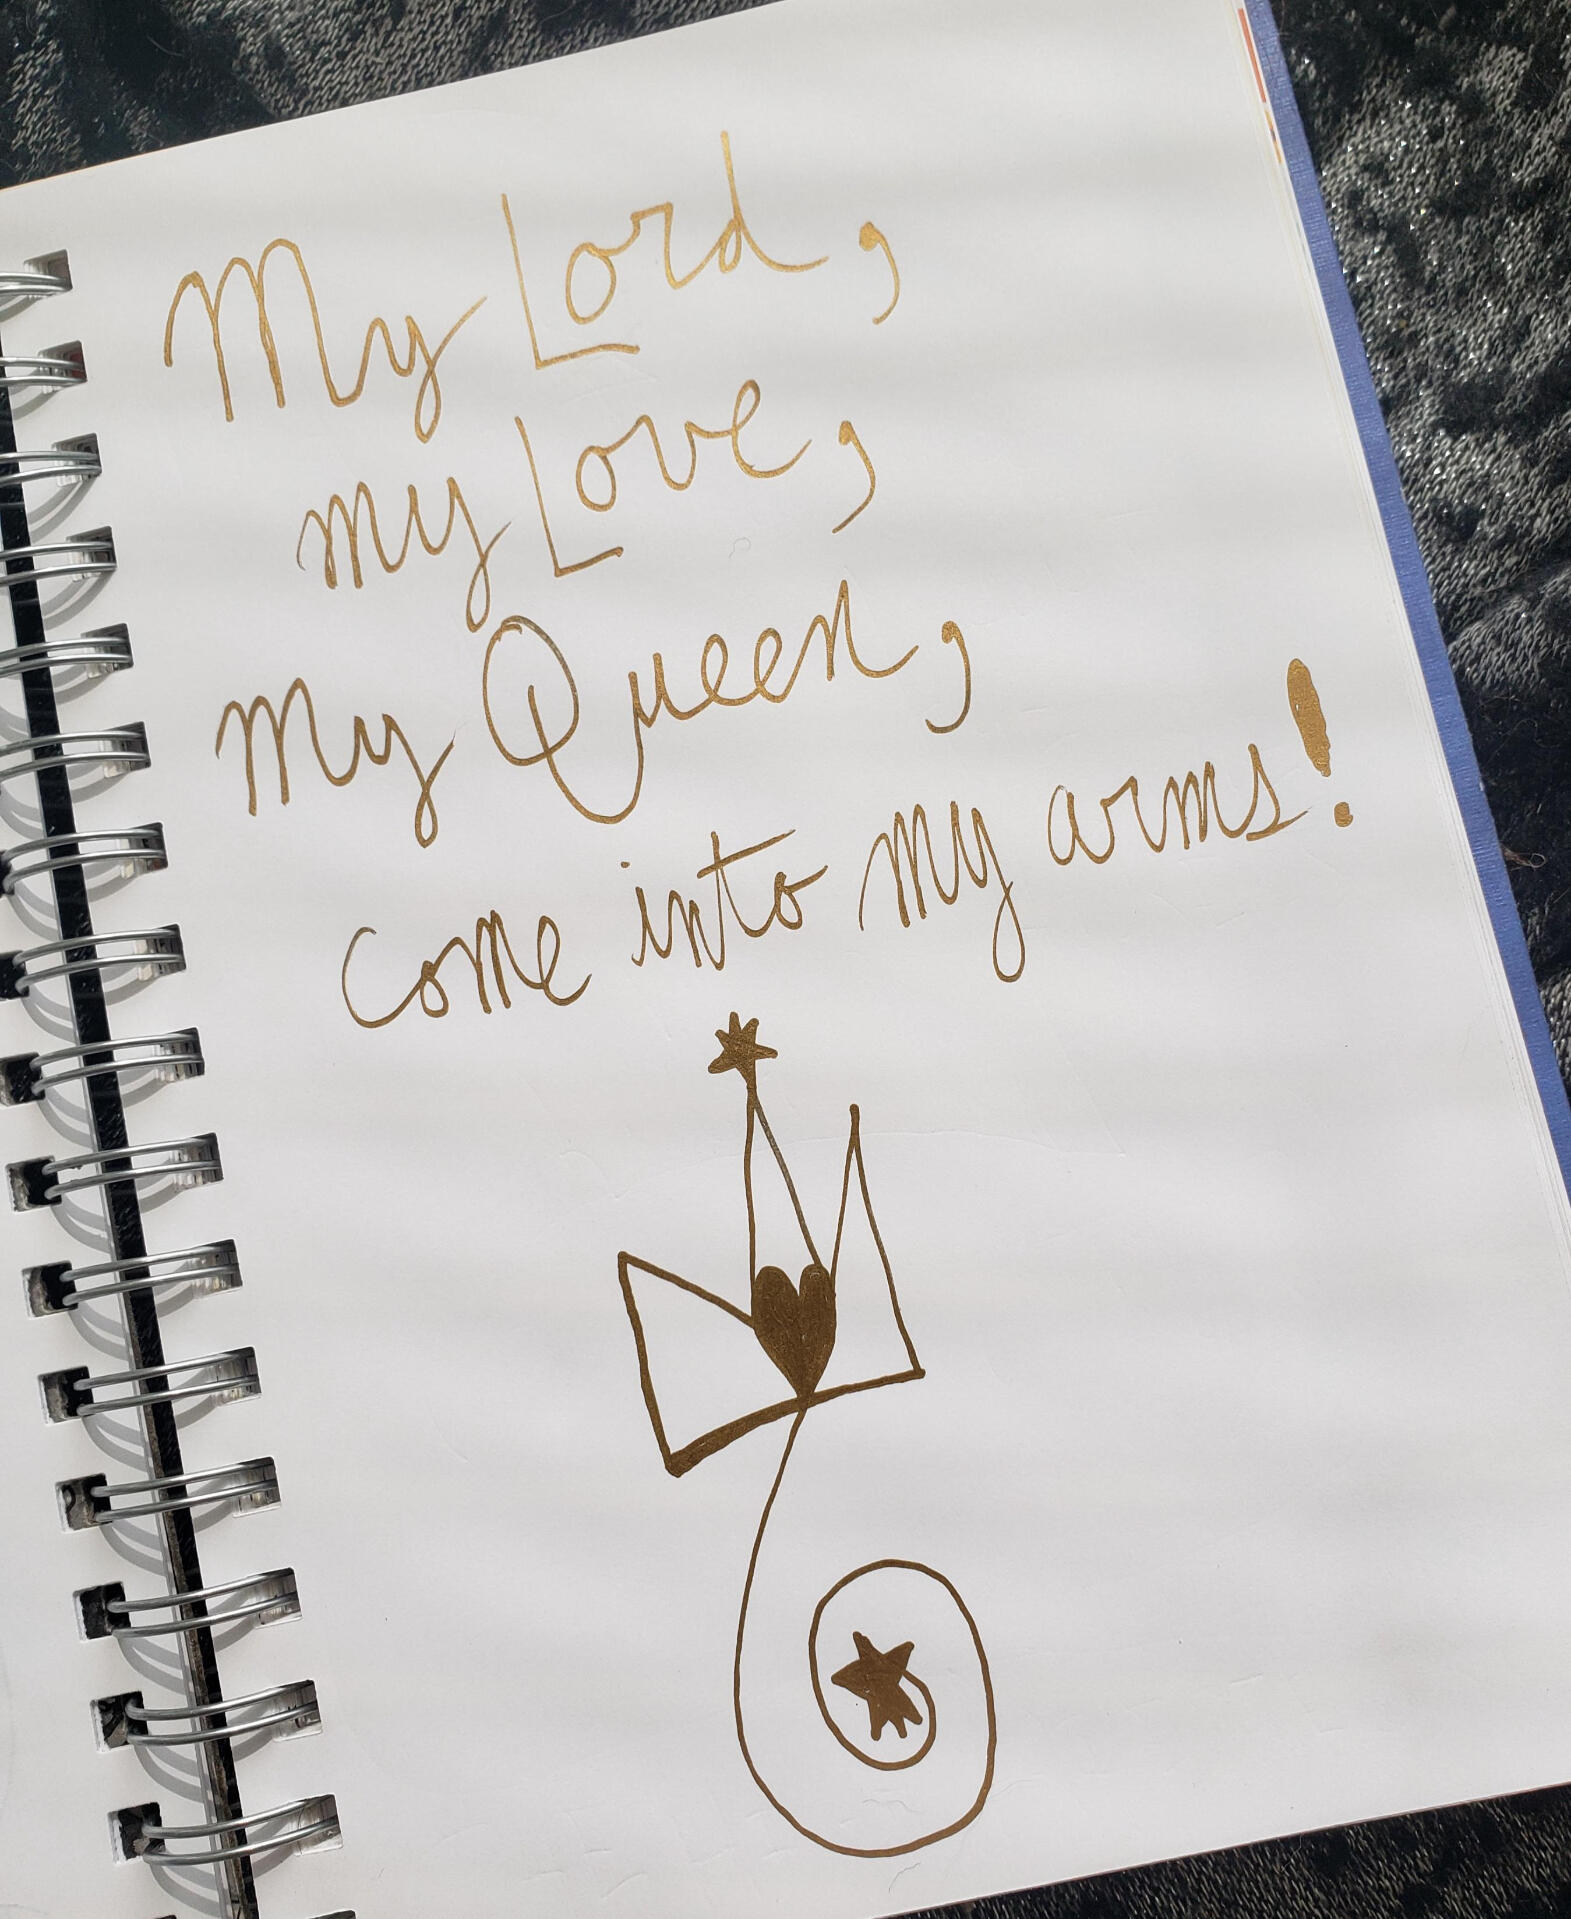 My Lord,
my Love,
My Queen,
come into my arms!